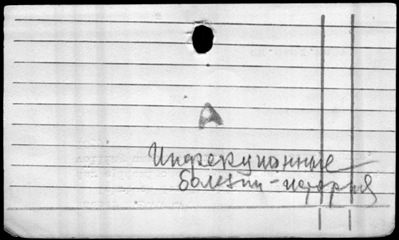 А
Инфекционные
болезни - история